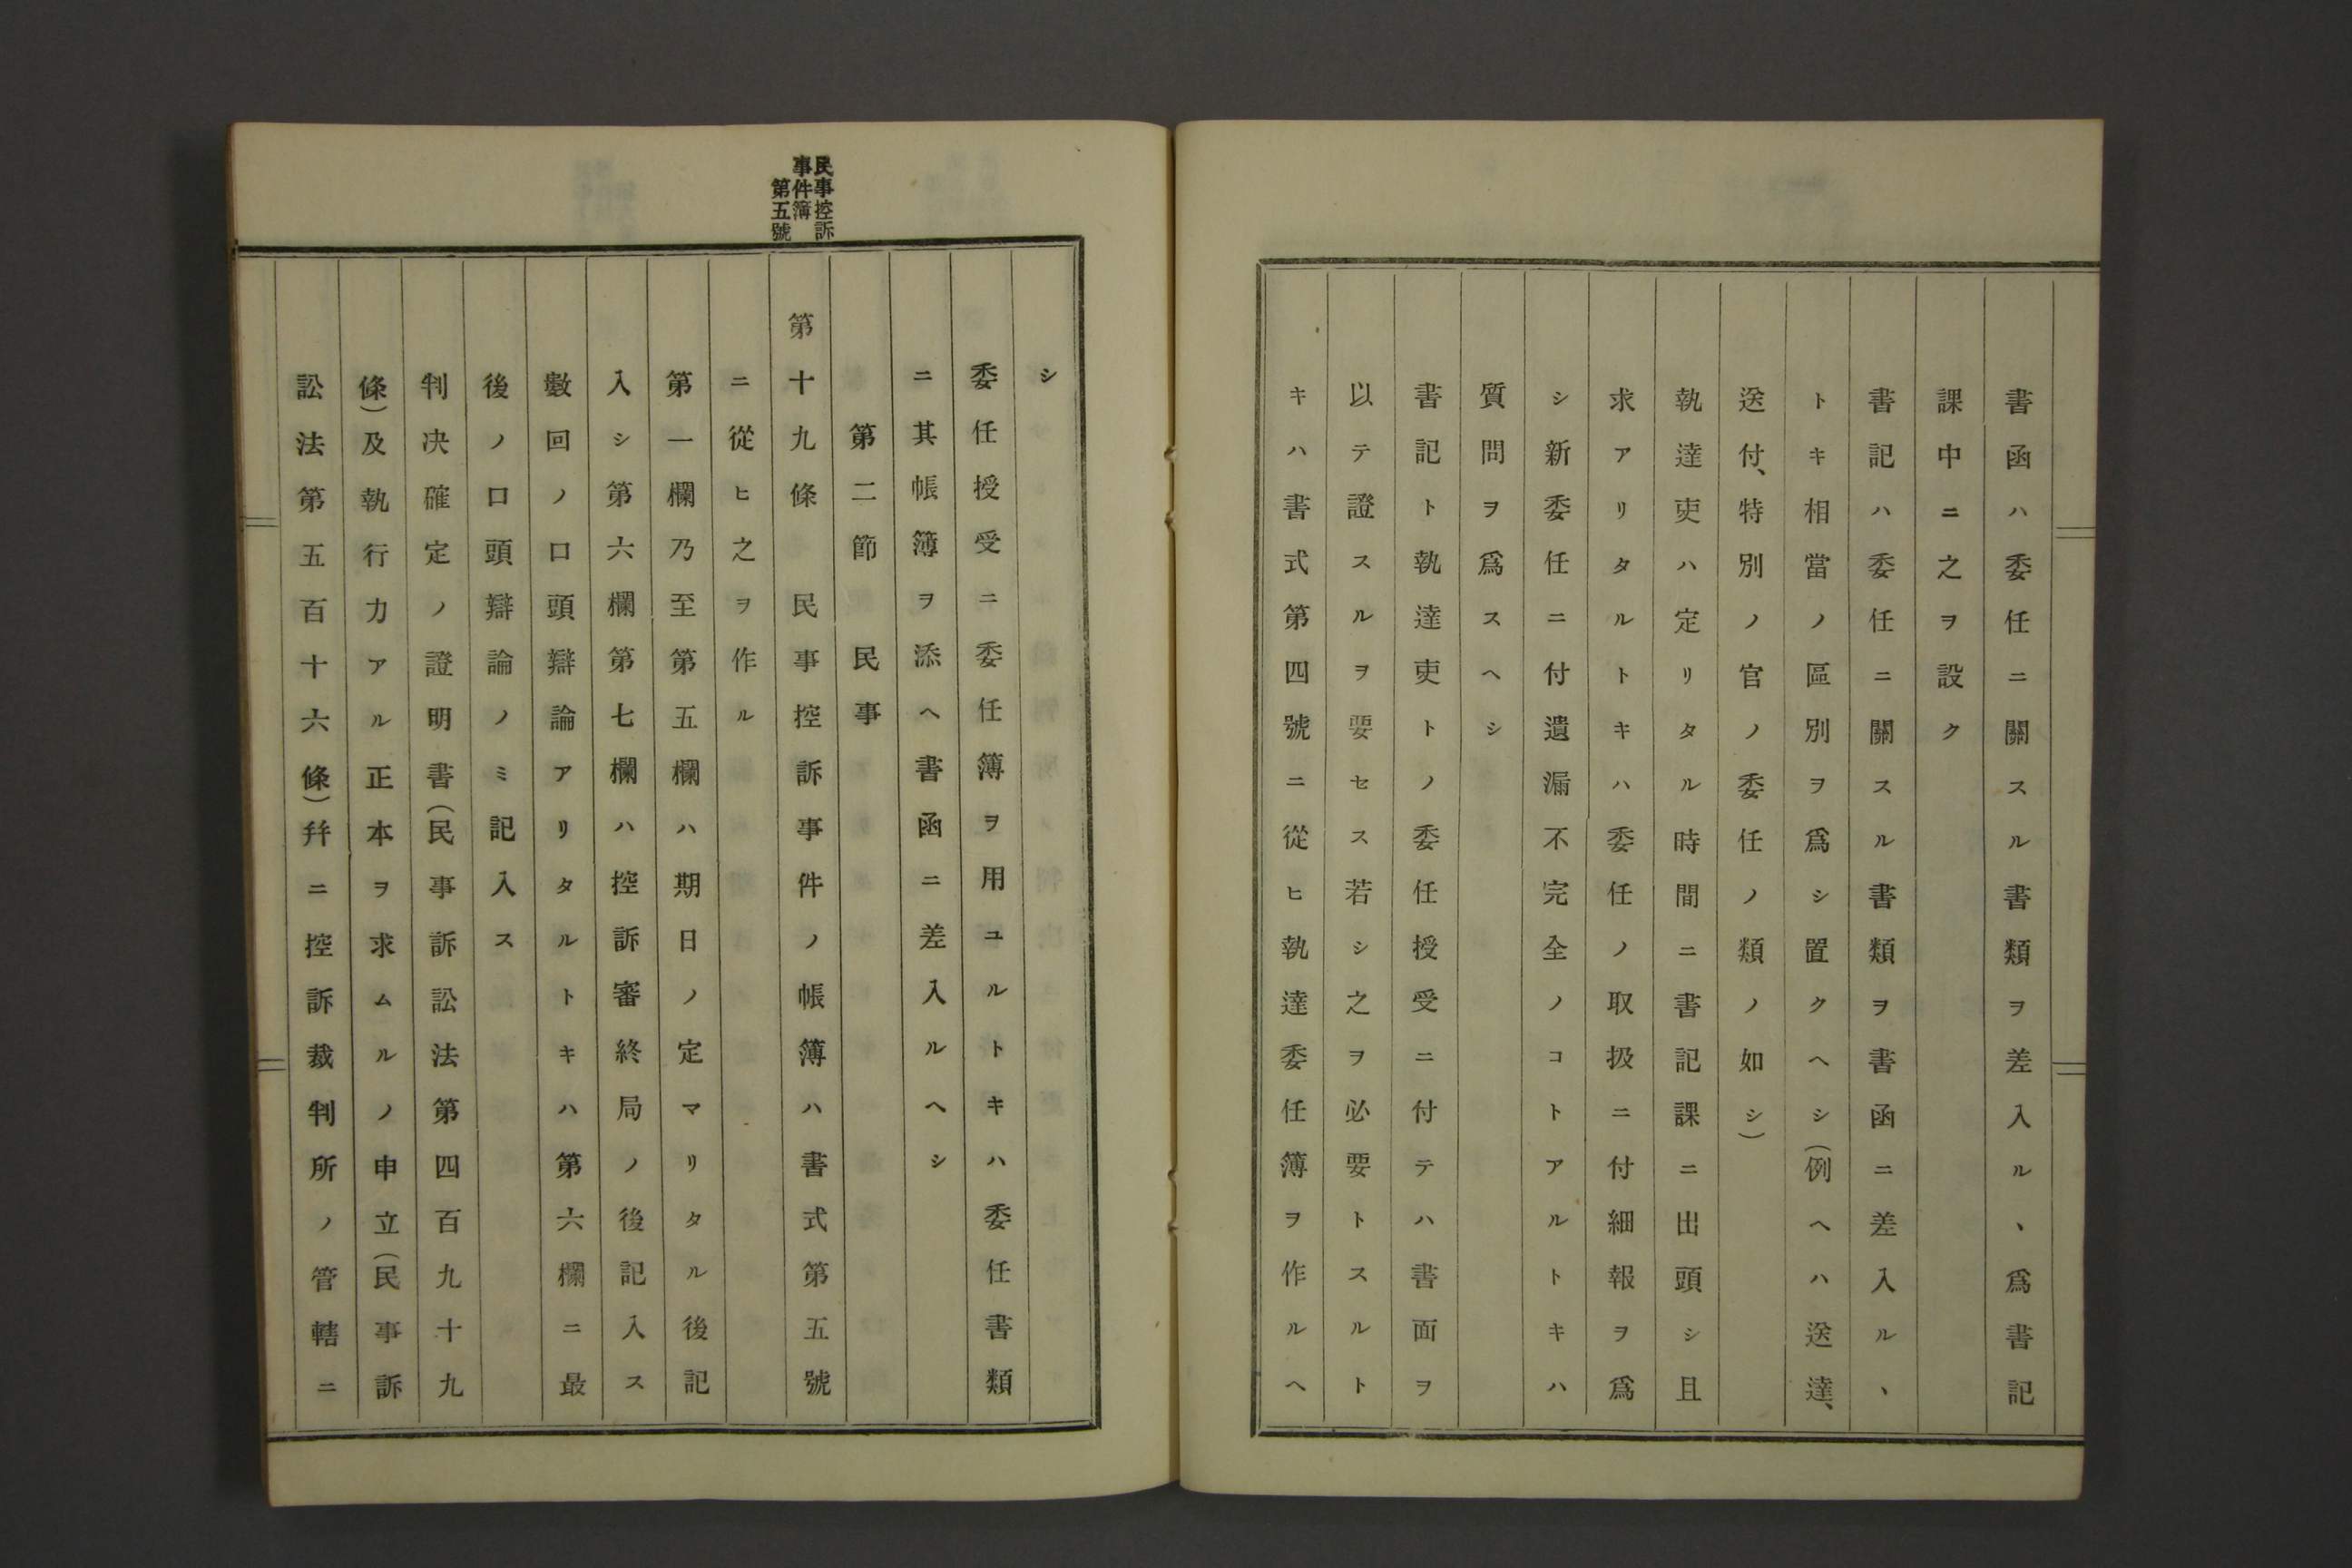 書函ハ委任ニ關スル書類ヲ差入ルヽ爲書記
課中ニ之ヲ設ク
書記ハ委任ニ關スル書類ヲ書函ニ差入ルヽ
トキ相當ノ區別ヲ爲シ置クヘシ(例ヘハ送達、
送付、特別ノ官ノ委任ノ類ノ如シ)
執達吏ハ定リタル時間ニ書記課ニ出頭シ且
求アリタルトキハ委任ノ取扱ニ付細報ヲ爲
シ新委任ニ付遺漏不完全ノコトアルトキハ
質問ヲ爲スヘシ
書記ト執達吏トノ委任授受ニ付テハ書面ヲ
以テ證スルヲ要セス若シ之ヲ必要トスルト
キハ書式第四號ニ從ヒ執達委任簿ヲ作ルヘ
シ
委任授受ニ委任簿ヲ用ユルトキハ委任書類
ニ其帳簿ヲ添ヘ書函ニ差入ルヘシ
第二節 民事
民事控訴
事件簿
第五號
第十九條 民事控訴事件ノ帳簿ハ書式第五號
ニ從ヒ之ヲ作ル
第一欄乃至第五欄ハ期日ノ定マリタル後記
入シ第六欄第七欄ハ控訴審終局ノ後記入ス
數回ノ口頭辯論アリタルトキハ第六欄ニ最
後ノ口頭辯論ノミ記入ス
判决確定ノ證明書(民事訴訟法第四百九十九
條)及執行力アル正本ヲ求ムルノ申立(民事訴
訟法第五百十六條)幷ニ控訴裁判所ノ管轄ニ